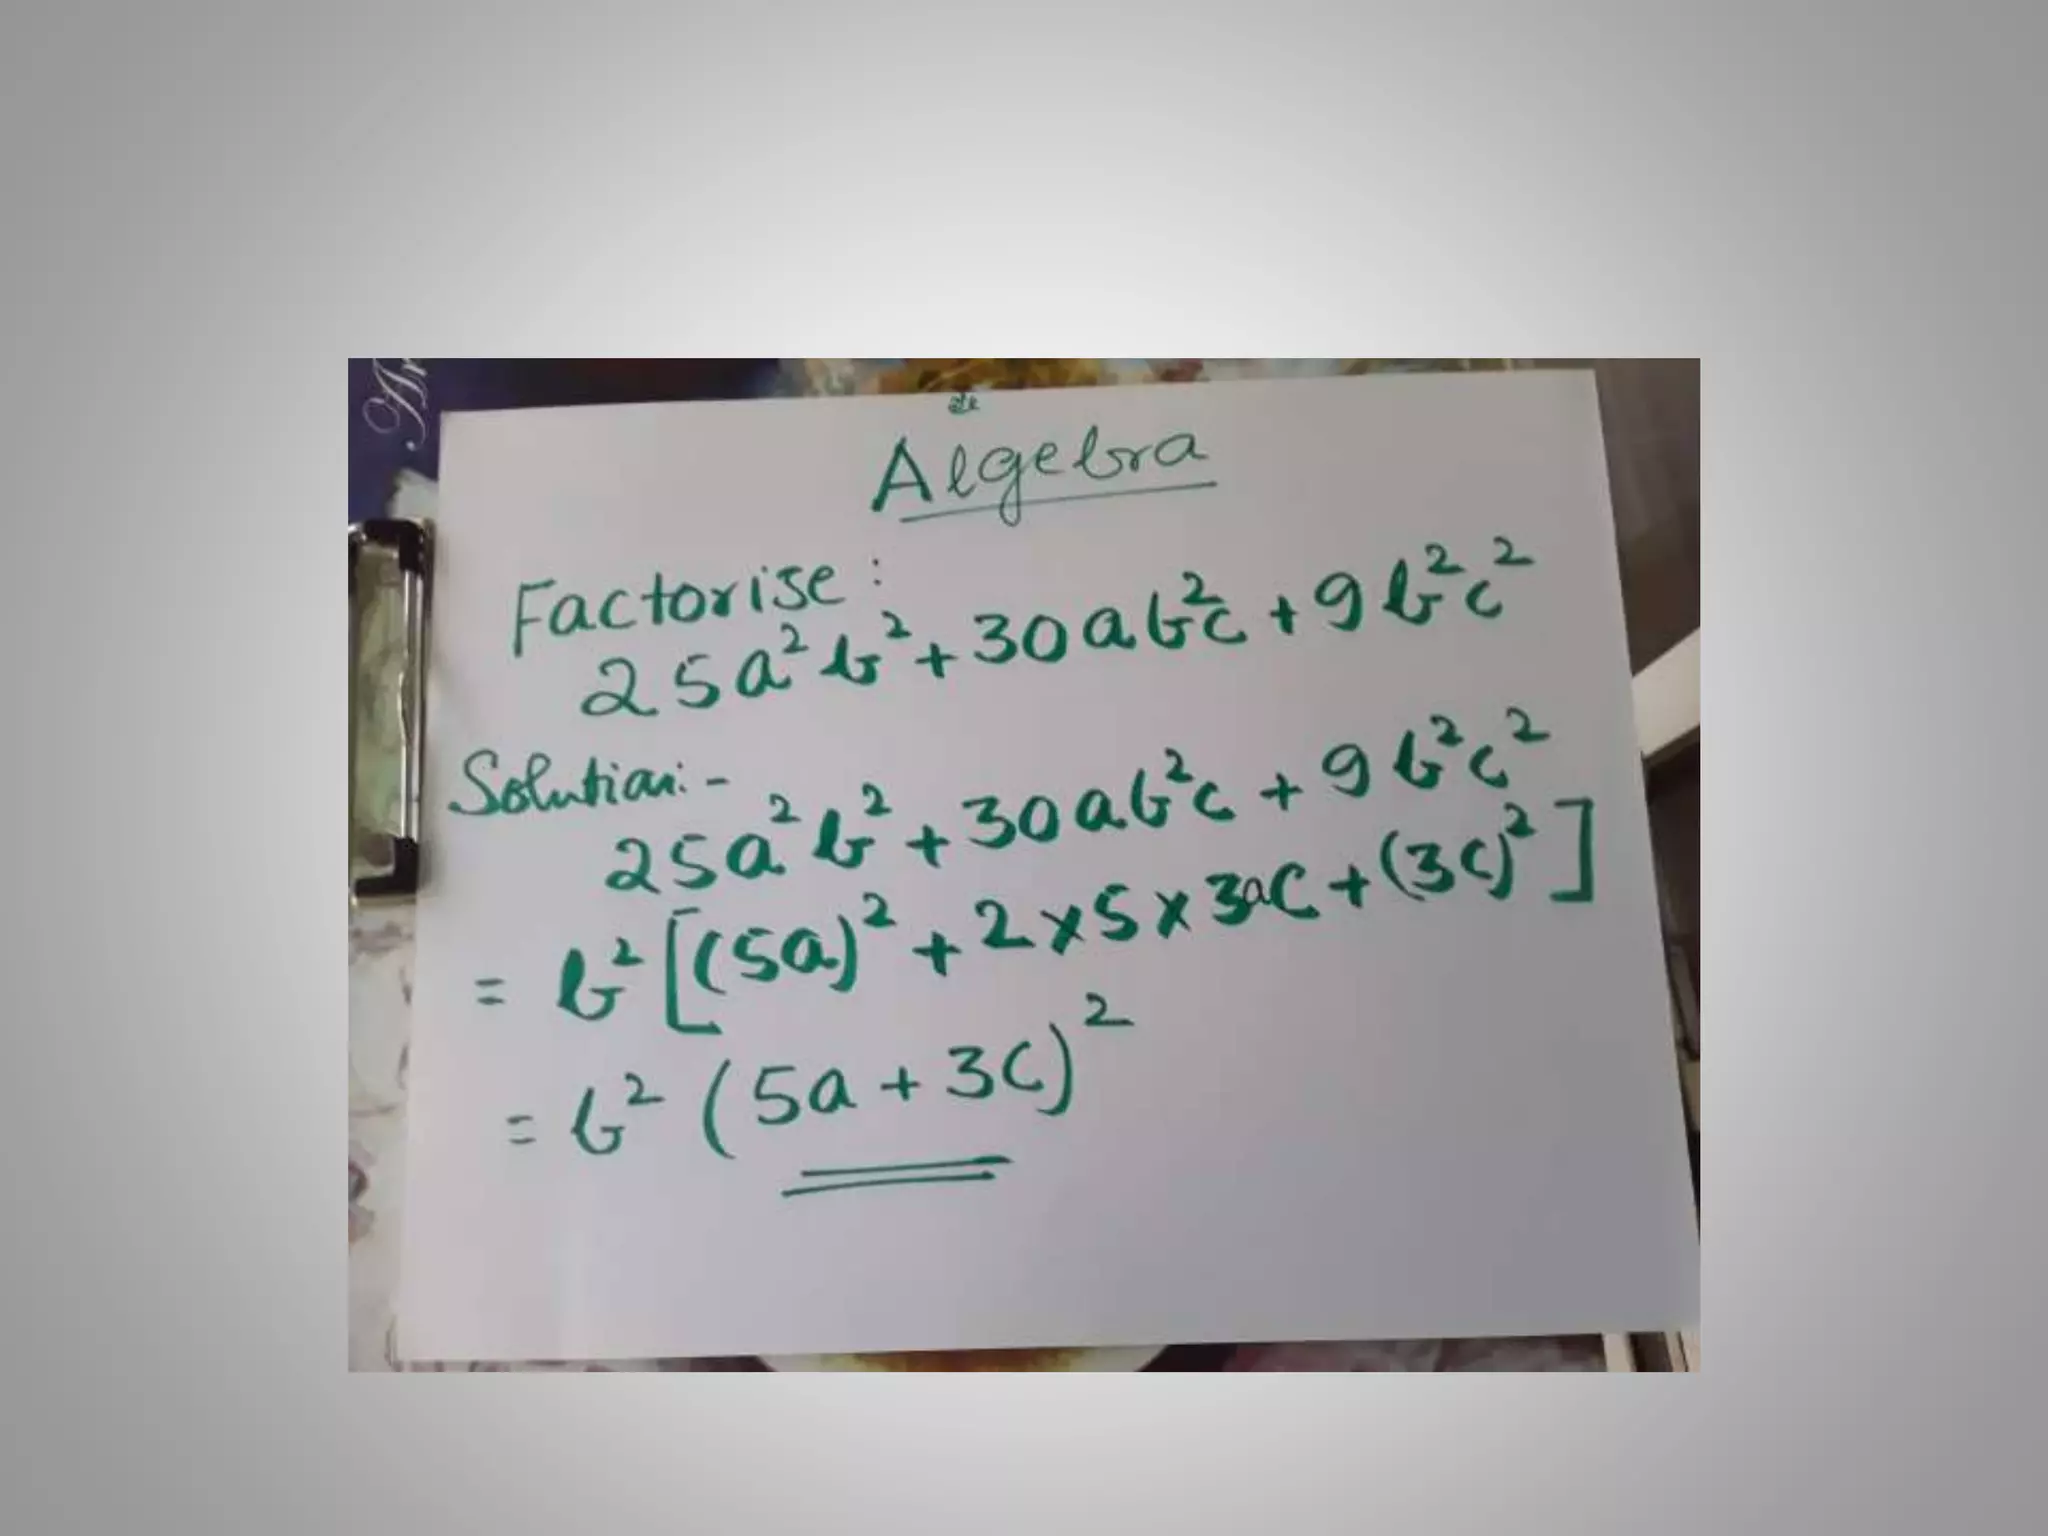 Ar
Algebra
Factorise:
25a²b² + 30ab²c + 9b²c²
Solution:-
25a²b² + 30ab²c + 9b²c²
= b² [(5a)² + 2×5×3ac + (3c)²]
= b² (5a + 3c)²